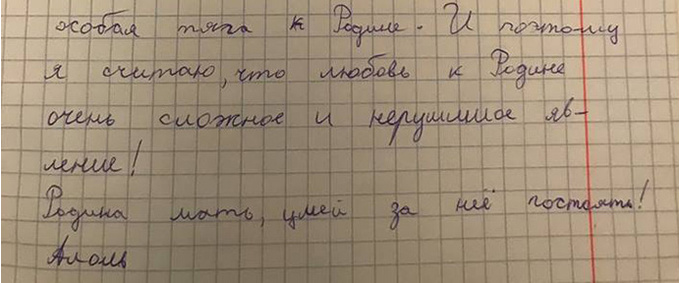 особая тяга к Родине. И поэтому
я считаю, что любовь к Родине
очень сложное и нерушимое яв-
ление!
Родина мать, умей за неё постоять!